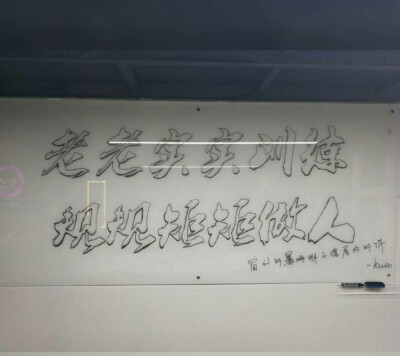 老老实实训练
规规矩矩做人